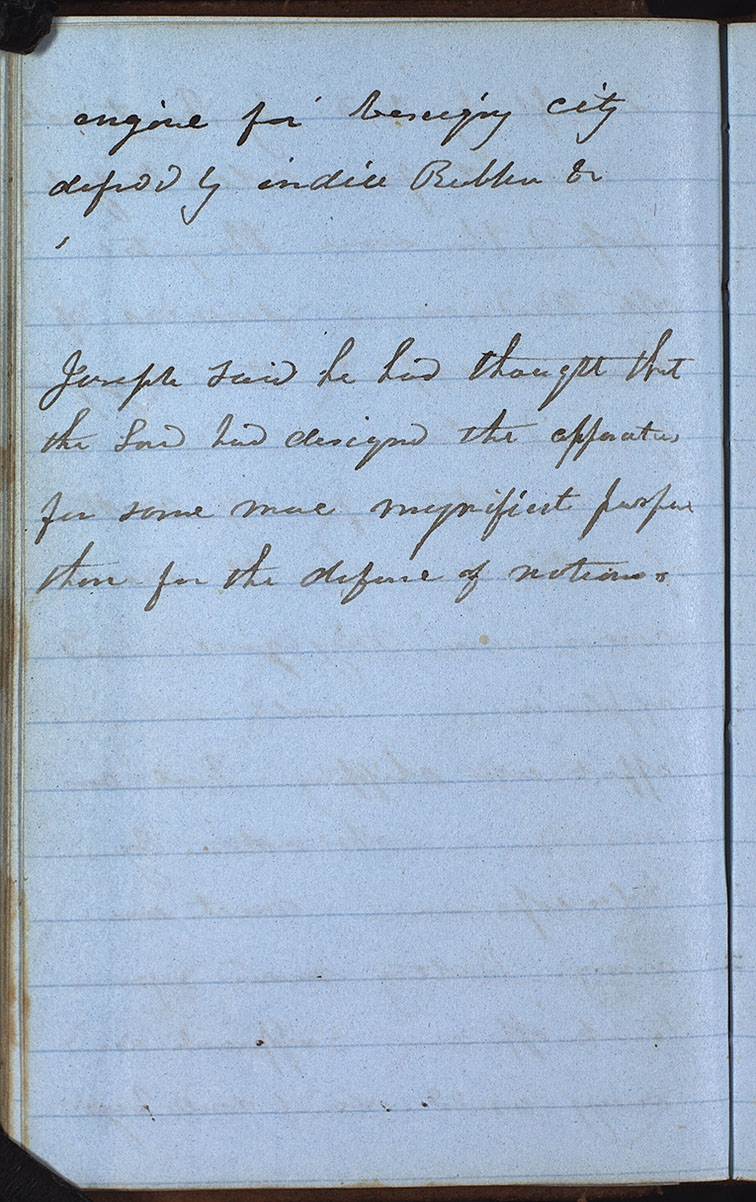 engine for beseigng city
by indice Rubber &c
Joseph said he had thought that
the Lord had designed the apparatus
for some more magnificent purpose
than for the defense of nations.